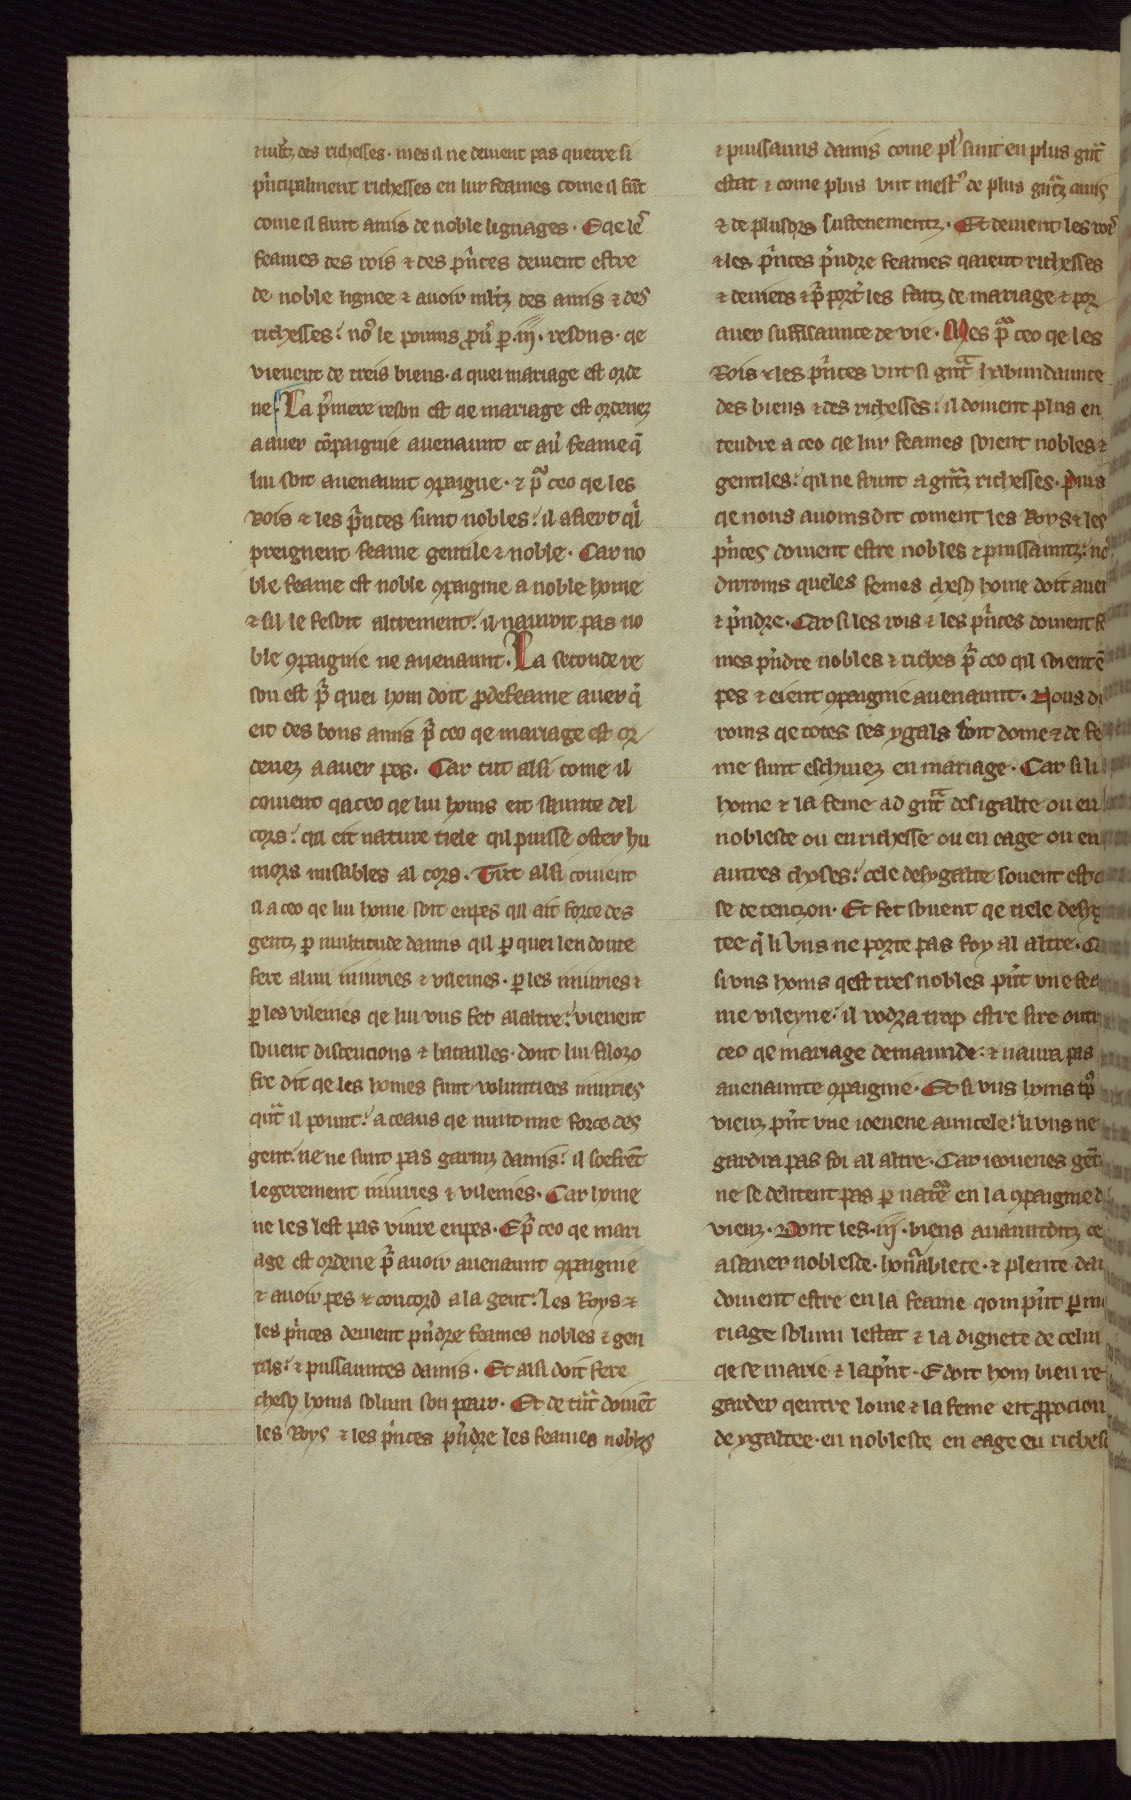 ⁊ mĩtz des richesses · mes il ne deiuent pas querre si
p̃ncipalment richesses en lur feames come il funt
come il funt amis de noble lignages · E qe lẽ
feames des rois ⁊ des p̃nces deiuent estre
de noble lignee ⁊ auoir mĩtz des amis ⁊ des
richesses: noꝰ le poums p̃ũ ꝑ .iij. resons · qe
vienent de treis biens · a quei mariage est orde
ne La p̃miere reson est qe mariage est ordenez
a auer cõpaignie auenaunt et aũ feame q̃
lui soit auenaunt ꝯpaigne · ⁊ pᵃ ceo qe les
Rois ⁊ les p̃nces sunt nobles: il afiert qĩl
preignent feame gentile ⁊ noble · Car no
ble feame est noble ꝯpaignie a noble home
⁊ sil le fesoit altrement: il nauroit pas no
ble ꝯpaignie ne auenaunt · La seconde re
son est p̃ quei hom doit p̃deffeame auer q̃
eit des bons amis p̃ ceo qe mariage est or
denez a auer pes · Car tut alsi come il
couient qa ceo qe lui homs eit saunte del
cors: qil eit nature tiele qil puisse oster hu
mors nusables al cors · Tut alsi couient
il a ceo qe lui home soit en pes qil ait force des
gentz ꝑ multitude damis qil ꝑ quei len doute
fere a lui iniuries ⁊ vileines · ꝑ les iniuries ⁊
ꝑ les vileinies qe lui vns fet al altre: vienent
souent discencions ⁊ batailles · dont lui filozo
fre dit qe les homes funt voluntiers iniuries
qñt il pount: a ceaus qe nunt mie force des
gent: ne ne sunt pas garniz damis: il soefrẽt
legerement iniuries ⁊ vilenies · Car lyme
ne les lest pas viure en pes · E p̃ ceo qe mari
age est ordene p̃ auoir auenaunt ꝯpaignie
⁊ auoir pes ⁊ concord a la gent: les Roys ⁊
les p̃nces deiuent p̃ndre feames nobles ⁊ gen
tils: ⁊ puissauntes damis · Et alsi doit fere
chesq̃ homs solum son poair · Et de tãt doiuẽt
les Roys ⁊ les p̃nces p̃ndre les feames nobles
⁊ puissauns damis come plꝰ sunt en plus gñt
estat ⁊ come plus vnt mestꝰ de plus gñtz amis
⁊ de plusors sustenementz · Et deiuent les rois
⁊ les p̃nces p̃ndre feames qaient richesses
⁊ deniers ⁊ p̃ port̃ les faitz de mariage ⁊ por
auer suffisaunce de vie · Mes pᵃ ceo qe les
Rois ⁊ les p̃nces vnt si gñt habundaunce
des biens ⁊ des richesses: il doiuent plus en
tendre a ceo qe lur feames soient nobles ⁊
gentiles: qil ne sount a gñtz richesses · Puis
qe nous auoms dit coment les Roys ⁊ les
p̃nces doiuent estre nobles ⁊ puissauntz: noꝰ
dirroms queles femes chesq̃ home doit auer
⁊ p̃ndre · Car si les rois ⁊ les p̃nces doiuent fe
mes p̃ndre nobles ⁊ riches p̃ ceo qil soient ẽ
pes ⁊ eient ꝯpaignie auenaunt · Nous di
roms qe totes des ygals soit dome ⁊ de fe
me sunt eschiuez en mariage · Car si li
home ⁊ la feme ad gñt desigalte ou en
nobleste ou en richesse ou en eage ou en
autres choses: cele desygalte souent est
se de tenczon · Et fet souent qe tiele desyg
tee q̃ li vns ne porte pas foy al altre ·
si vns homs qest tres nobles p̃nt vne fea
me vileyne: il vodra trop estre sire outr
ceo qe mariage demaunde: ⁊ naura pas
auenaunte ꝯpaignie · Et si vns homs tꝰp
vieuz p̃nt vne ioeuene auncele: li vns ne
gardra pas foi al altre · Car ioeuenes gẽt
ne se delitent pas ꝑ natᵃe en la ꝯpaignie d
vieuz · Dont les .iij. biens auauntditz ce
asauer nobleste · honᵃablete · ⁊ plente dam
doiuent estre en la feame qom p̃nt ꝑ ma
riage solum lestat ⁊ la dignete de celui
qe se marie ⁊ la p̃nt · E doit hom bien re
garder qentre lome ⁊ la feme eit p̃pocion
de ygaltee · en nobleste en eage en riches